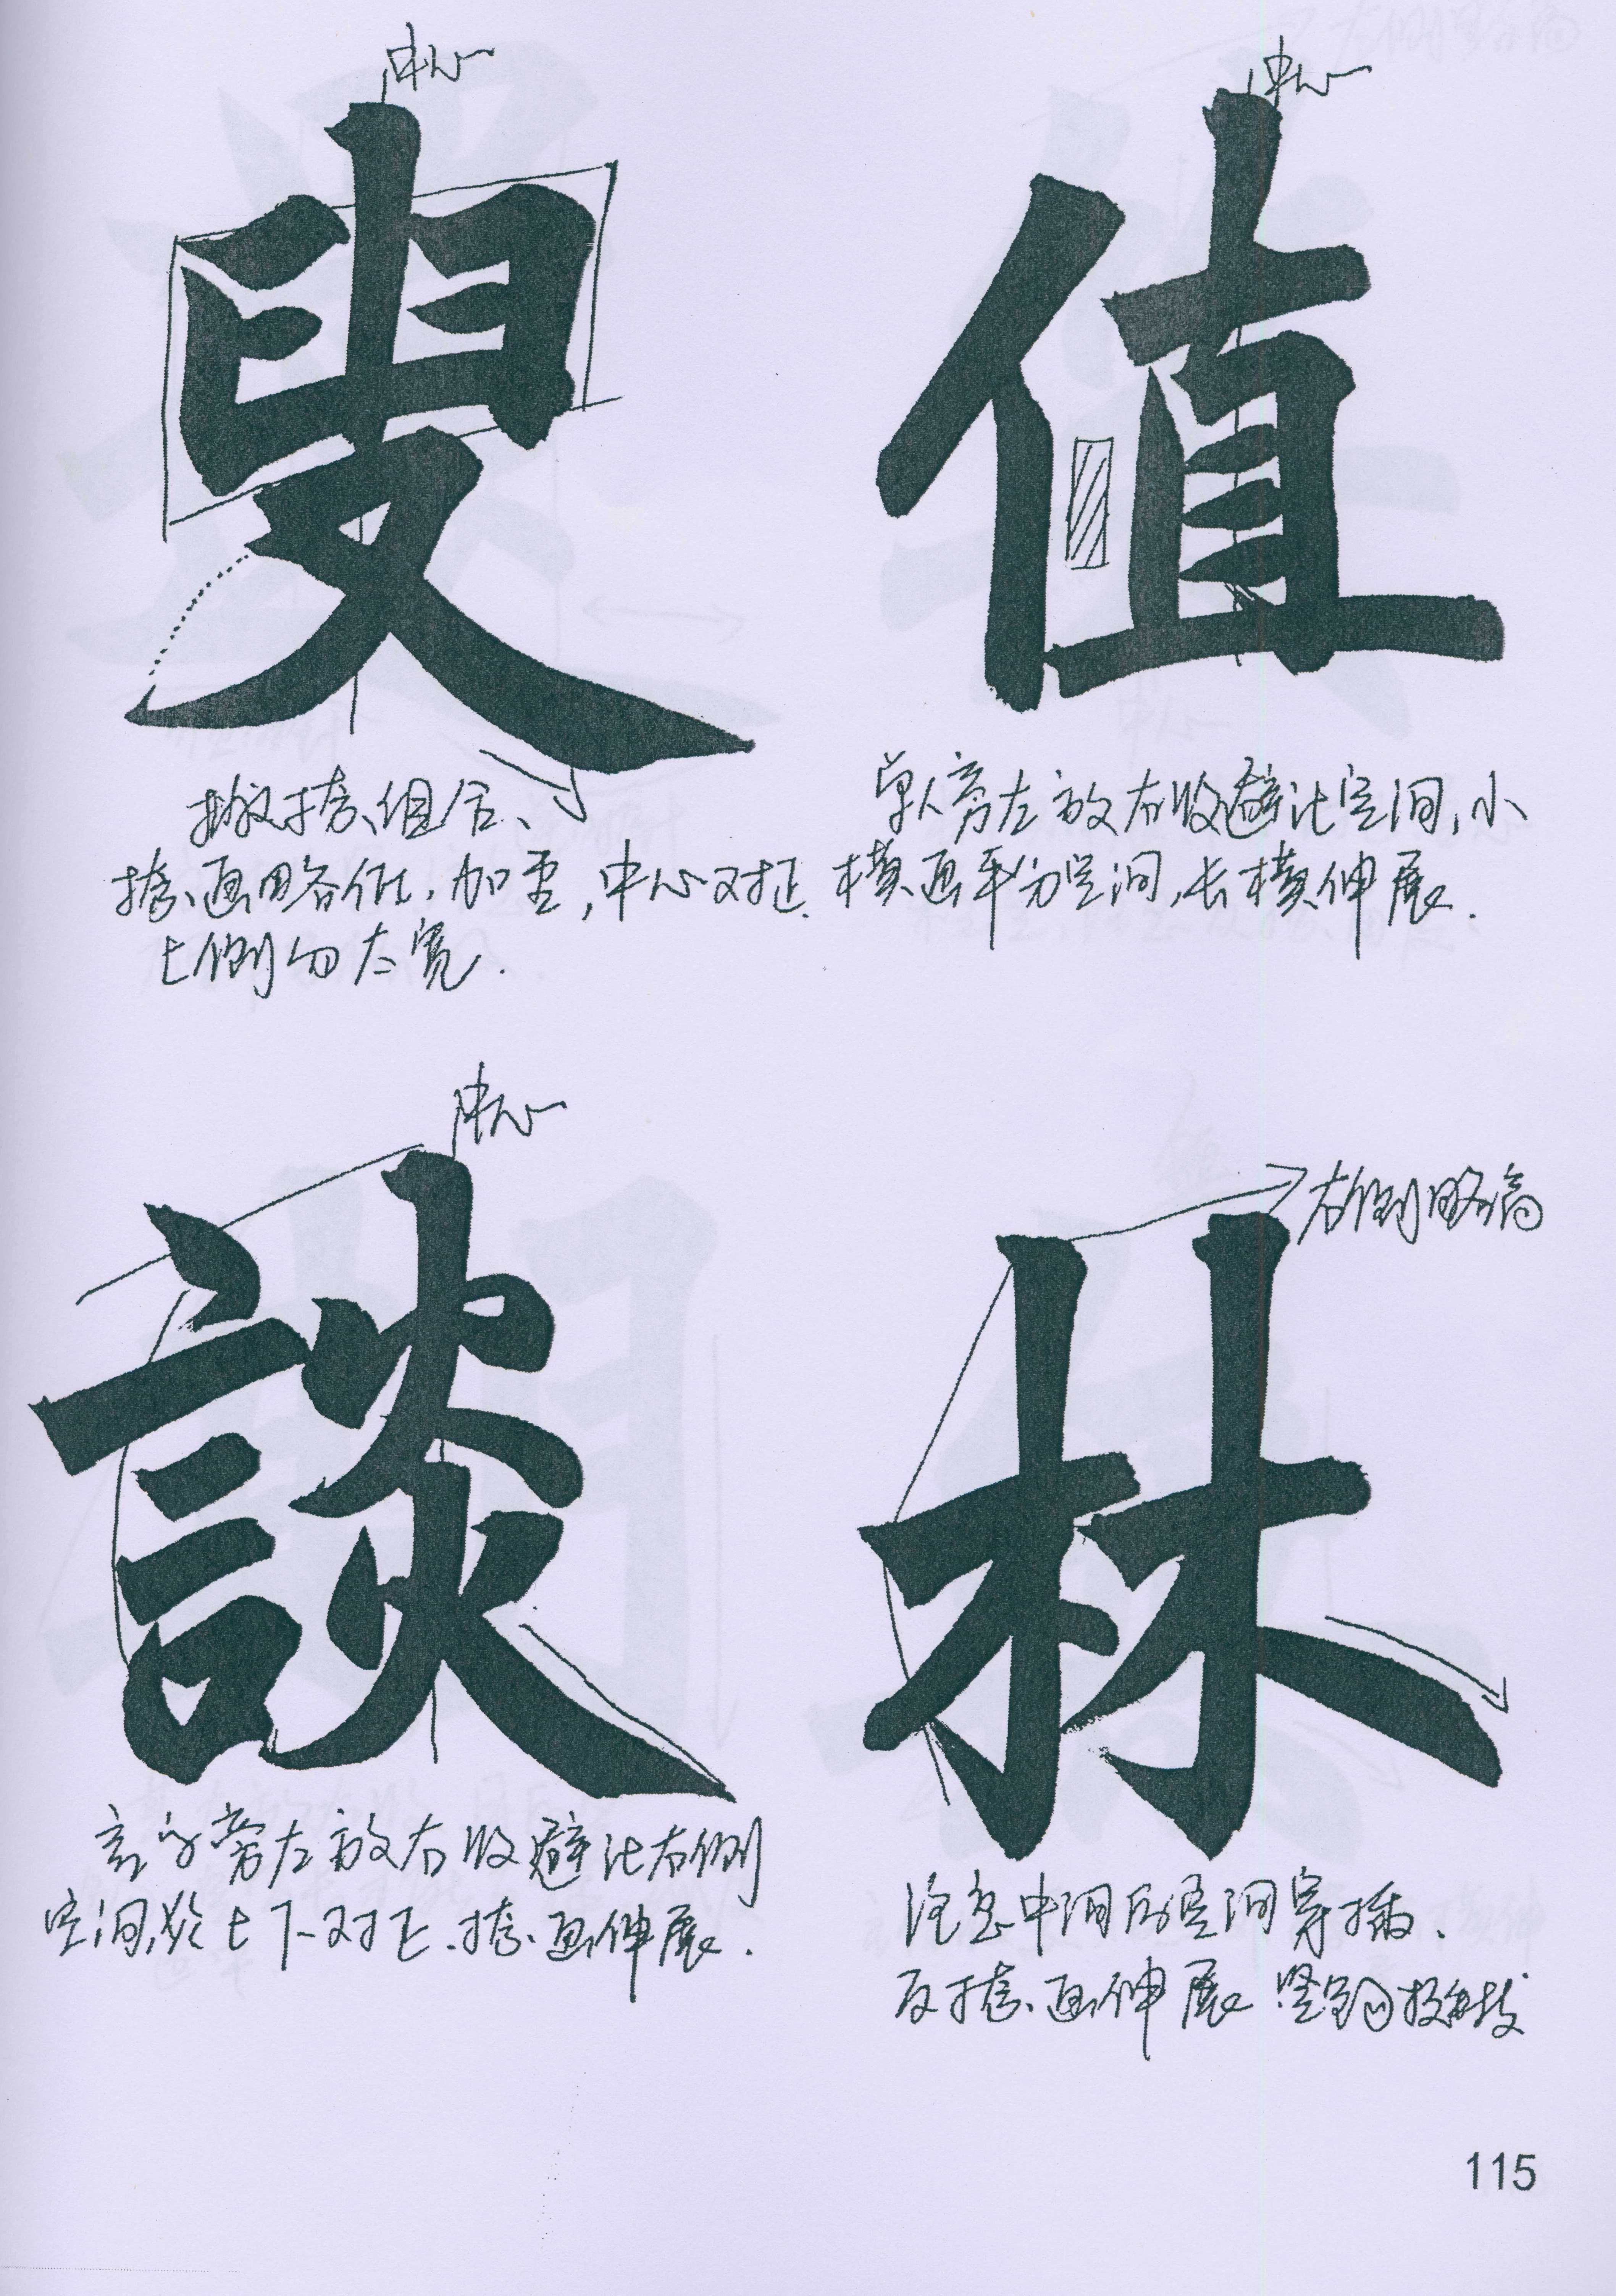 中心
叟
撇捺组合、
捺画略低,加重,中心对正.
上侧勿太宽.
中心
值
单人旁左放右收避让空间,小
横画平分空间,长横伸展.
中心
談
言字旁左放右收避让右侧
空间,炎上下对正.捺画伸展.
右侧略高
林
注意中间的空间穿插.
反捺画伸展 竖钩挺拔
115